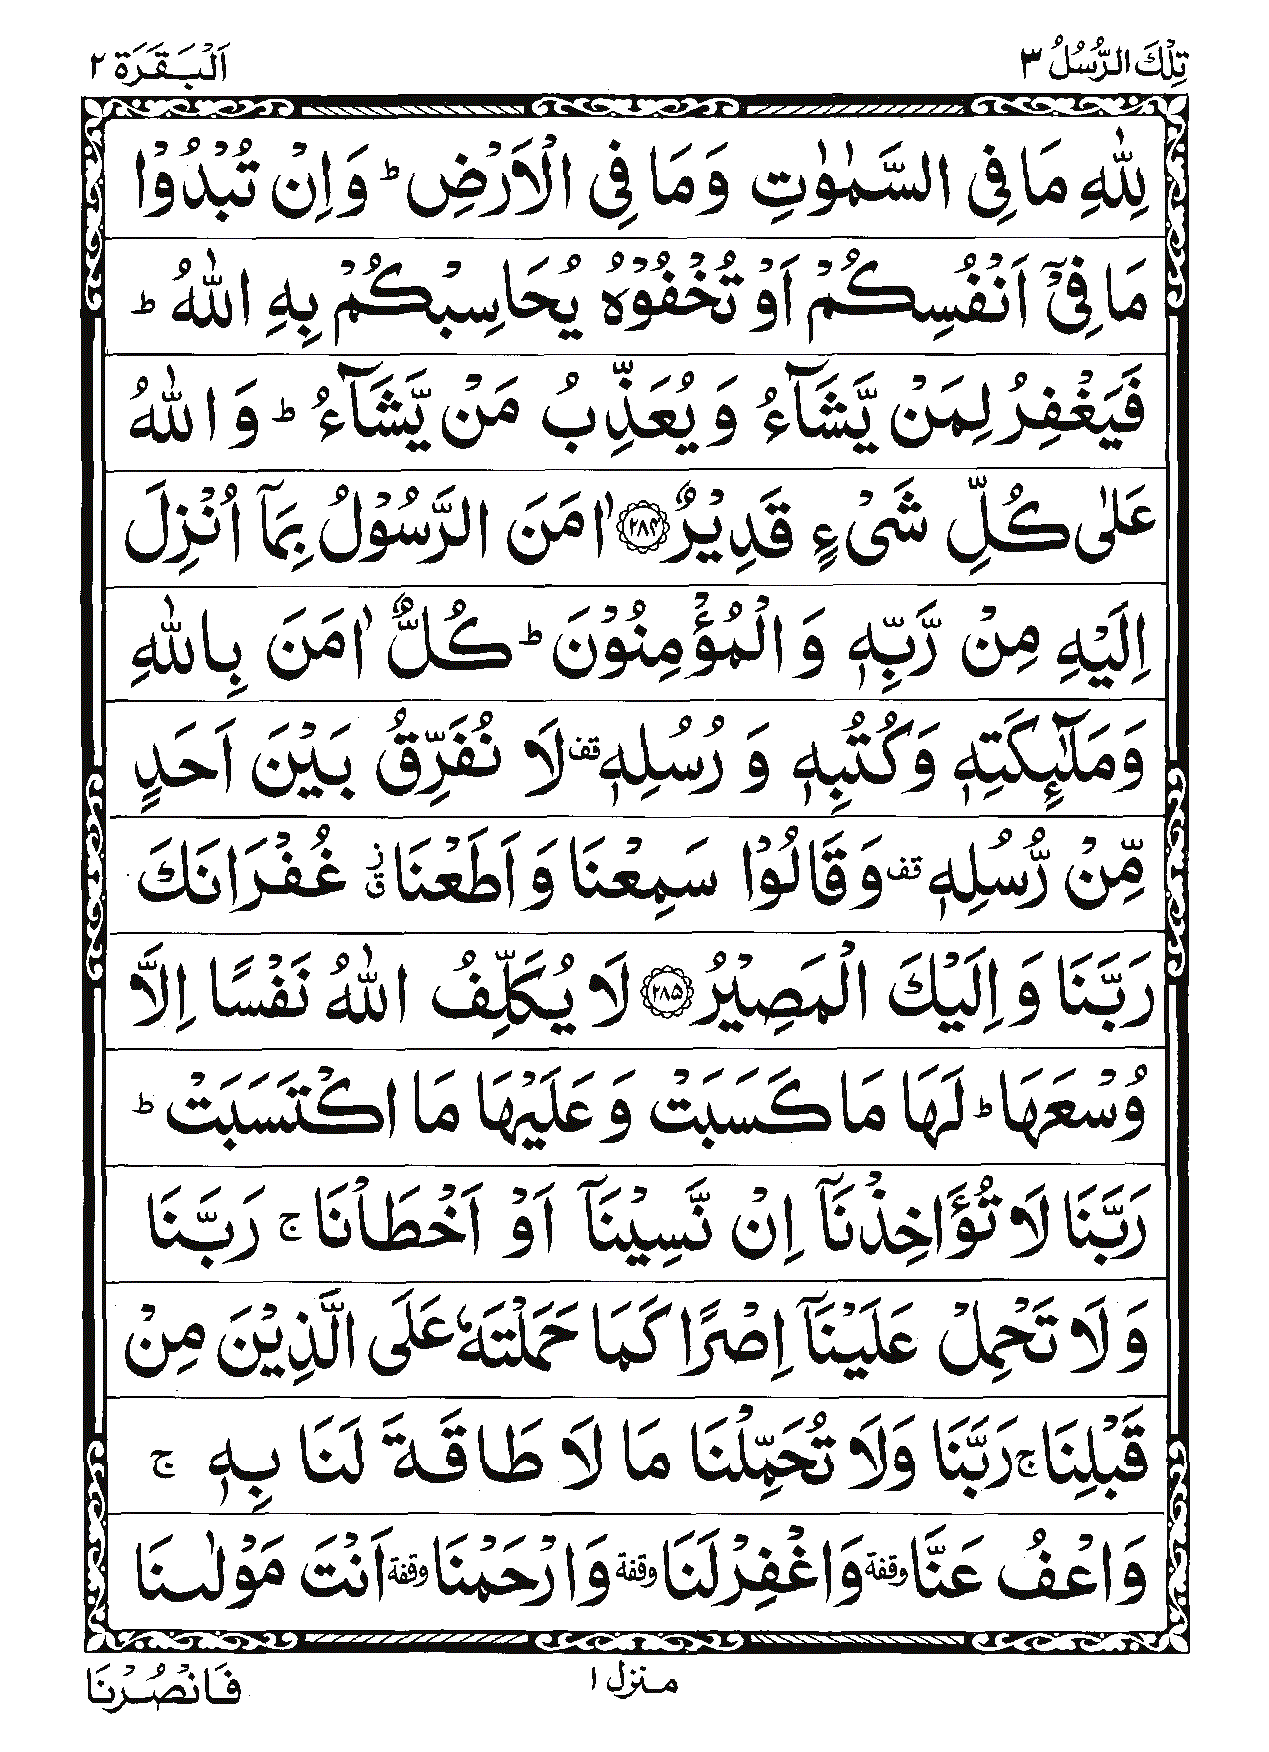 تِلْكَ الرُّسُلُ ٣
اَلْبَقَرَة ٢
لِلّٰهِ مَا فِی السَّمٰوٰتِ وَمَا فِی الْاَرْضِ ؕ وَاِنْ تُبْدُوْا
مَا فِیْۤ اَنْفُسِكُمْ اَوْ تُخْفُوْهُ یُحَاسِبْكُمْ بِهِ اللّٰهُ ؕ
فَیَغْفِرُ لِمَنْ یَّشَآءُ وَیُعَذِّبُ مَنْ یَّشَآءُ ؕ وَاللّٰهُ
عَلٰی كُلِّ شَیْءٍ قَدِیْرٌ ﴿۲۸۴﴾ اٰمَنَ الرَّسُوْلُ بِمَاۤ اُنْزِلَ
اِلَیْهِ مِنْ رَّبِّهٖ وَالْمُؤْمِنُوْنَ ؕ كُلٌّ اٰمَنَ بِاللّٰهِ
وَمَلٰٓئِكَتِهٖ وَكُتُبِهٖ وَرُسُلِهٖ قف لَا نُفَرِّقُ بَیْنَ اَحَدٍ
مِّنْ رُّسُلِهٖ قف وَقَالُوْا سَمِعْنَا وَاَطَعْنَا ز ق غُفْرَانَكَ
رَبَّنَا وَاِلَیْكَ الْمَصِیْرُ ﴿۲۸۵﴾ لَا یُكَلِّفُ اللّٰهُ نَفْسًا اِلَّا
وُسْعَهَا ؕ لَهَا مَا كَسَبَتْ وَعَلَیْهَا مَا اكْتَسَبَتْ ؕ
رَبَّنَا لَا تُؤَاخِذْنَاۤ اِنْ نَّسِیْنَاۤ اَوْ اَخْطَاْنَا ۚ رَبَّنَا
وَلَا تَحْمِلْ عَلَیْنَاۤ اِصْرًا كَمَا حَمَلْتَهٗ عَلَی الَّذِیْنَ مِنْ
قَبْلِنَا ۚ رَبَّنَا وَلَا تُحَمِّلْنَا مَا لَا طَاقَةَ لَنَا بِهٖ ۚ
وَاعْفُ عَنَّا وقفة وَاغْفِرْ لَنَا وقفة وَارْحَمْنَا وقفة اَنْتَ مَوْلٰىنَا
منزل ١
فَانْصُرْنَا